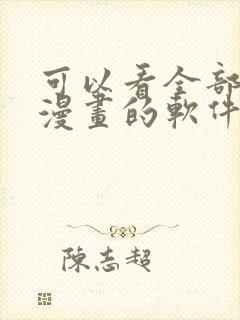 可以看全部
漫畫的軟件
陳志超